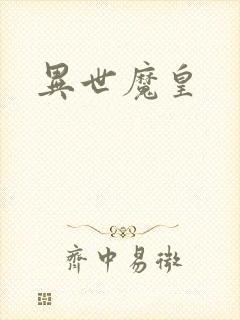 異世魔皇
齊中易微